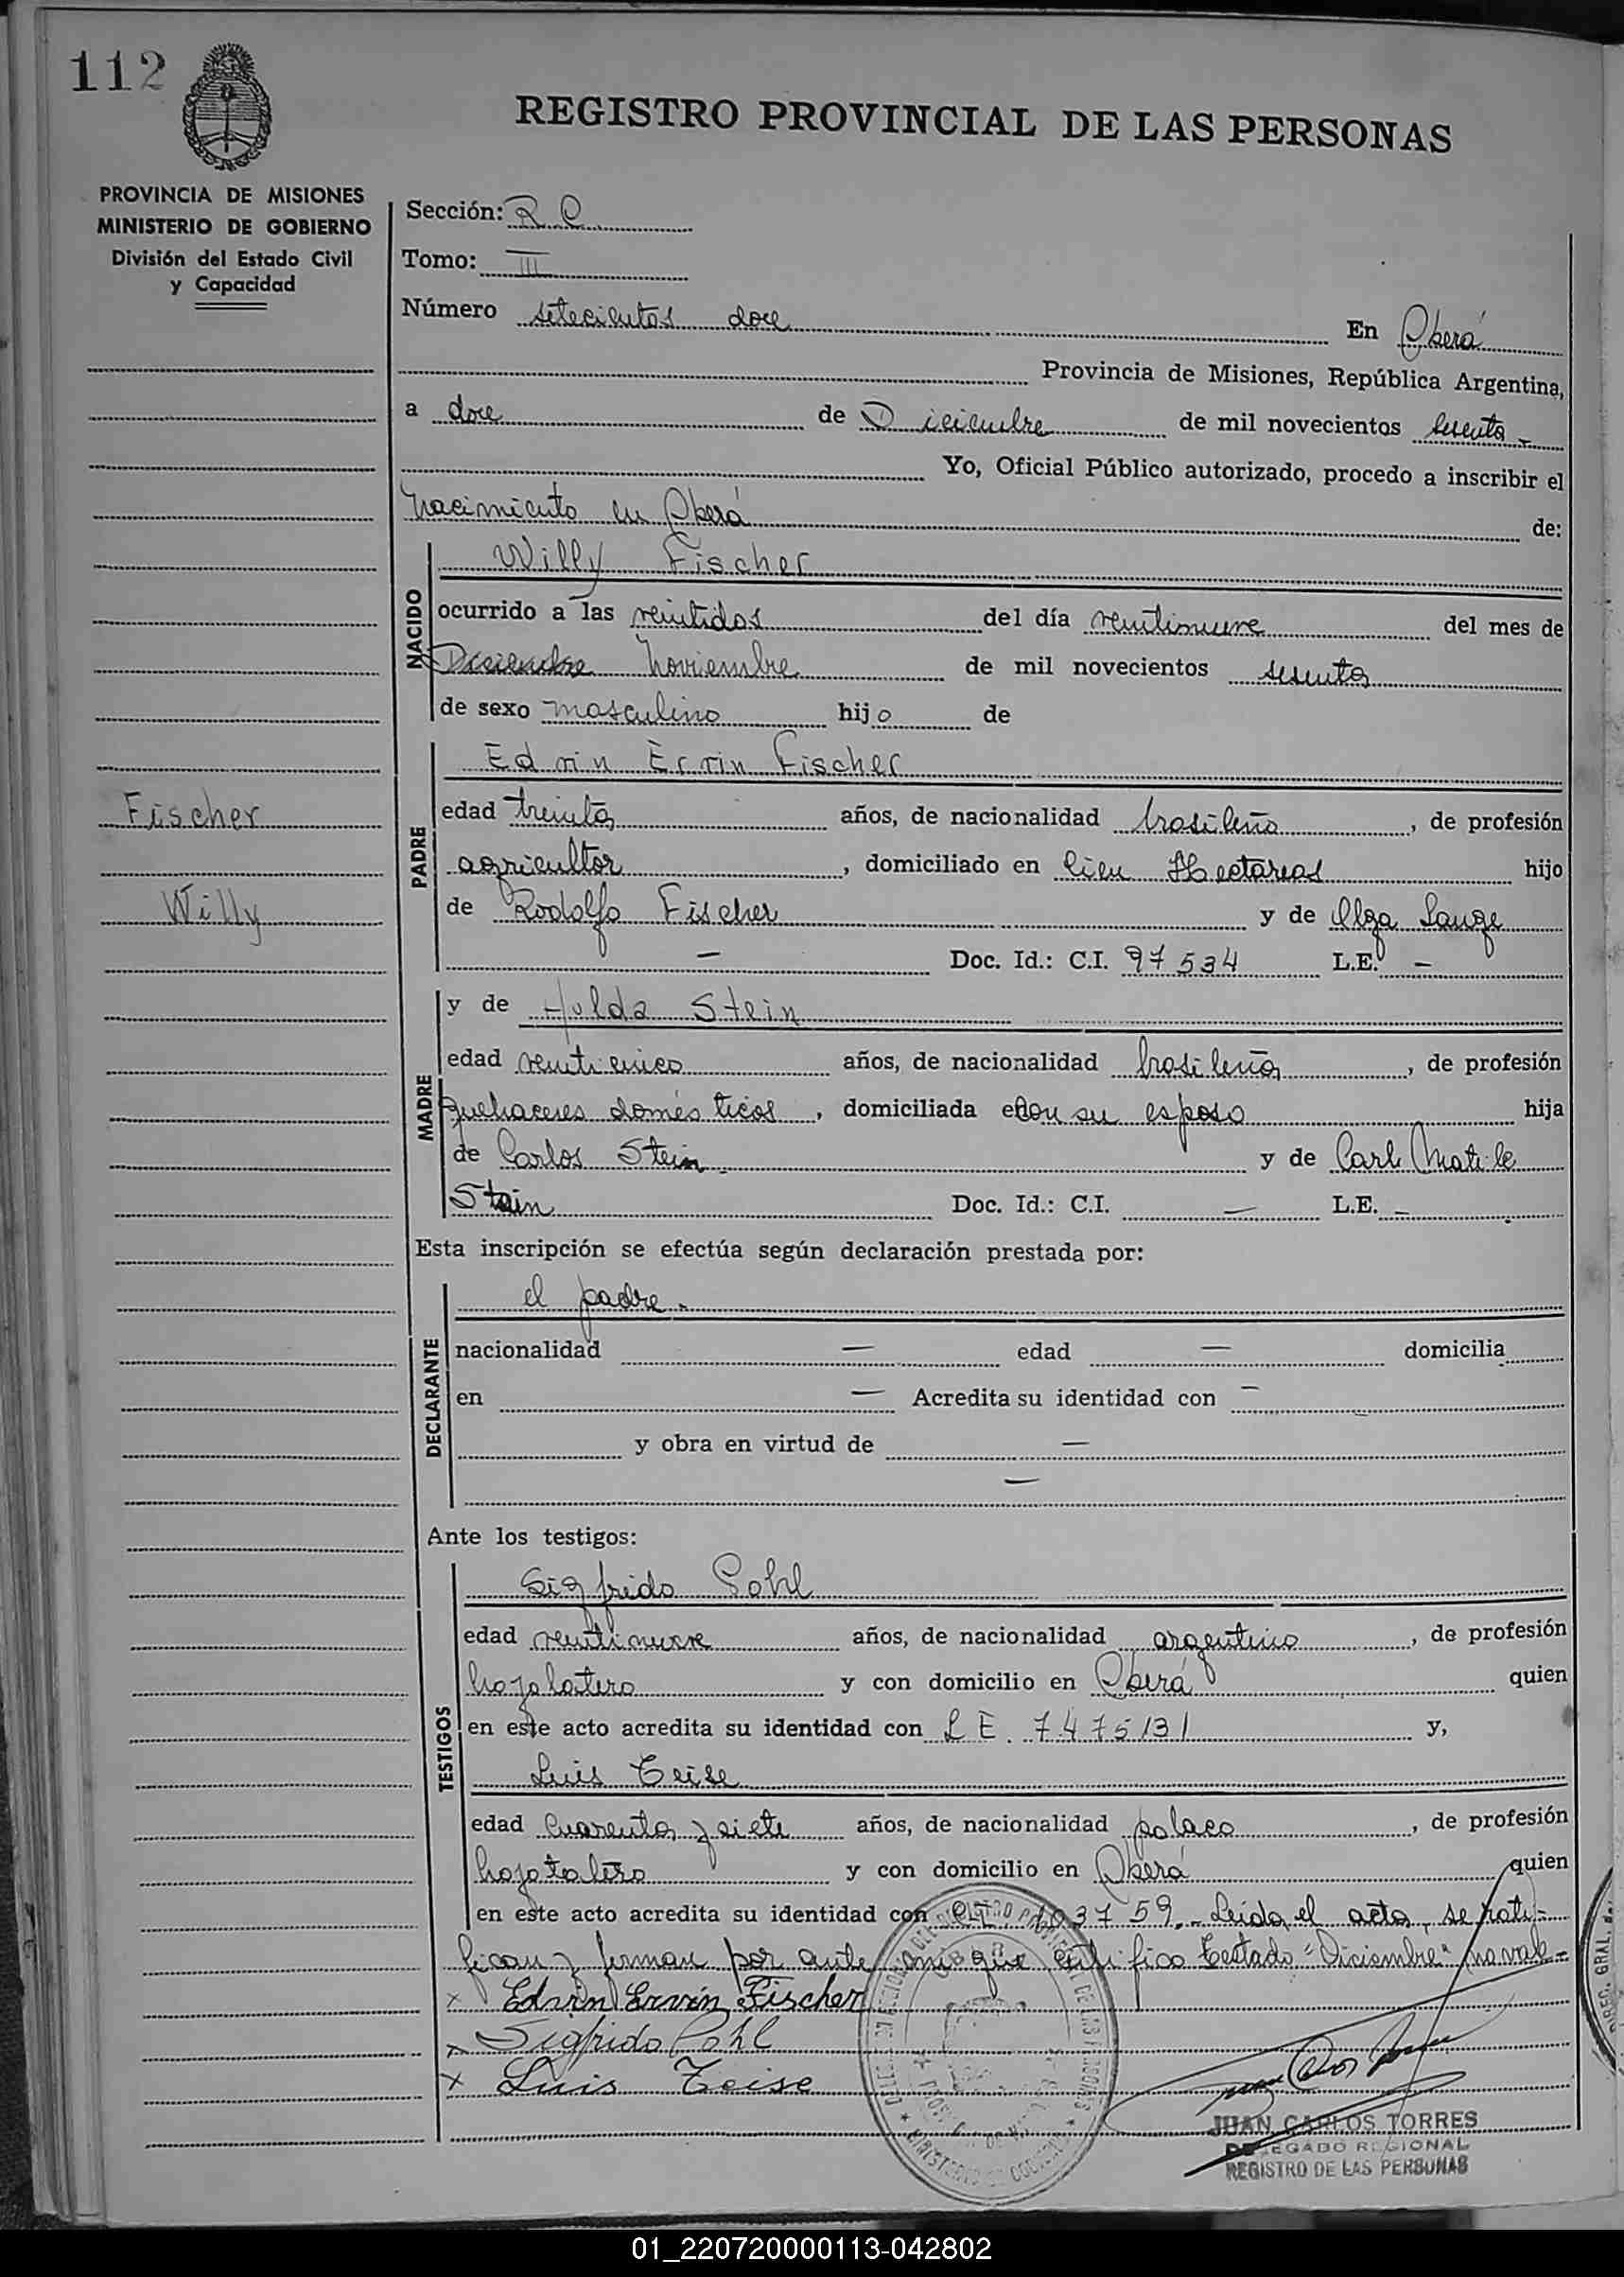 112
REGISTRO PROVINCIAL DE LAS PERSONAS
PROVINCIA DE MISIONES
MINISTERIO DE GOBIERNO
División del Estado Civil
y Capacidad
Fischer
Willy
Sección: R C
Tomo: III
Número setecientos doce En Oberá
Provincia de Misiones, República Argentina,
a doce de Diciembre de mil novecientos sesenta
Yo, Oficial Público autorizado, procedo a inscribir el
nacimiento en Oberá de:
NACIDO
Willy Fischer
ocurrido a las veintidos del día veintinueve del mes de
Diciembre Noviembre de mil novecientos sesenta
de sexo masculino hijo de
PADRE
Edvin Ervin Fischer
edad treinta años, de nacionalidad brasileña, de profesión
agricultor, domiciliado en Cien Hectareas hijo
de Rodolfo Fischer y de Olga Lange
— Doc. Id.: C.I. 97534 L.E. —
MADRE
y de Hulda Stein
edad veinticinco años, de nacionalidad brasileña, de profesión
quehaceres domésticos, domiciliada con su esposo hija
de Carlos Stein y de Matilde
Stein Doc. Id.: C.I. — L.E. —
Esta inscripción se efectúa según declaración prestada por:
DECLARANTE
el padre.
nacionalidad — edad — domicilia
en — Acredita su identidad con —
y obra en virtud de —
—
Ante los testigos:
TESTIGOS
Sigfrido Pohl
edad veintinueve años, de nacionalidad argentino, de profesión
hojalatero y con domicilio en Oberá quien
en este acto acredita su identidad con L E. 7475131 y,
Luis Zeise
edad cuarenta y siete años, de nacionalidad polaco, de profesión
hojatalero y con domicilio en Oberá quien
en este acto acredita su identidad con 103759.- Leida el acta, se rati-
fican y firman por ante mi que certifico Testado "Diciembre" no vale-
x Edvin Ervin Fischer
x Sigfrido Pohl
x Luis Zeise
JUAN CARLOS TORRES
DELEGADO REGIONAL
REGISTRO DE LAS PERSONAS
01_220720000113-042802